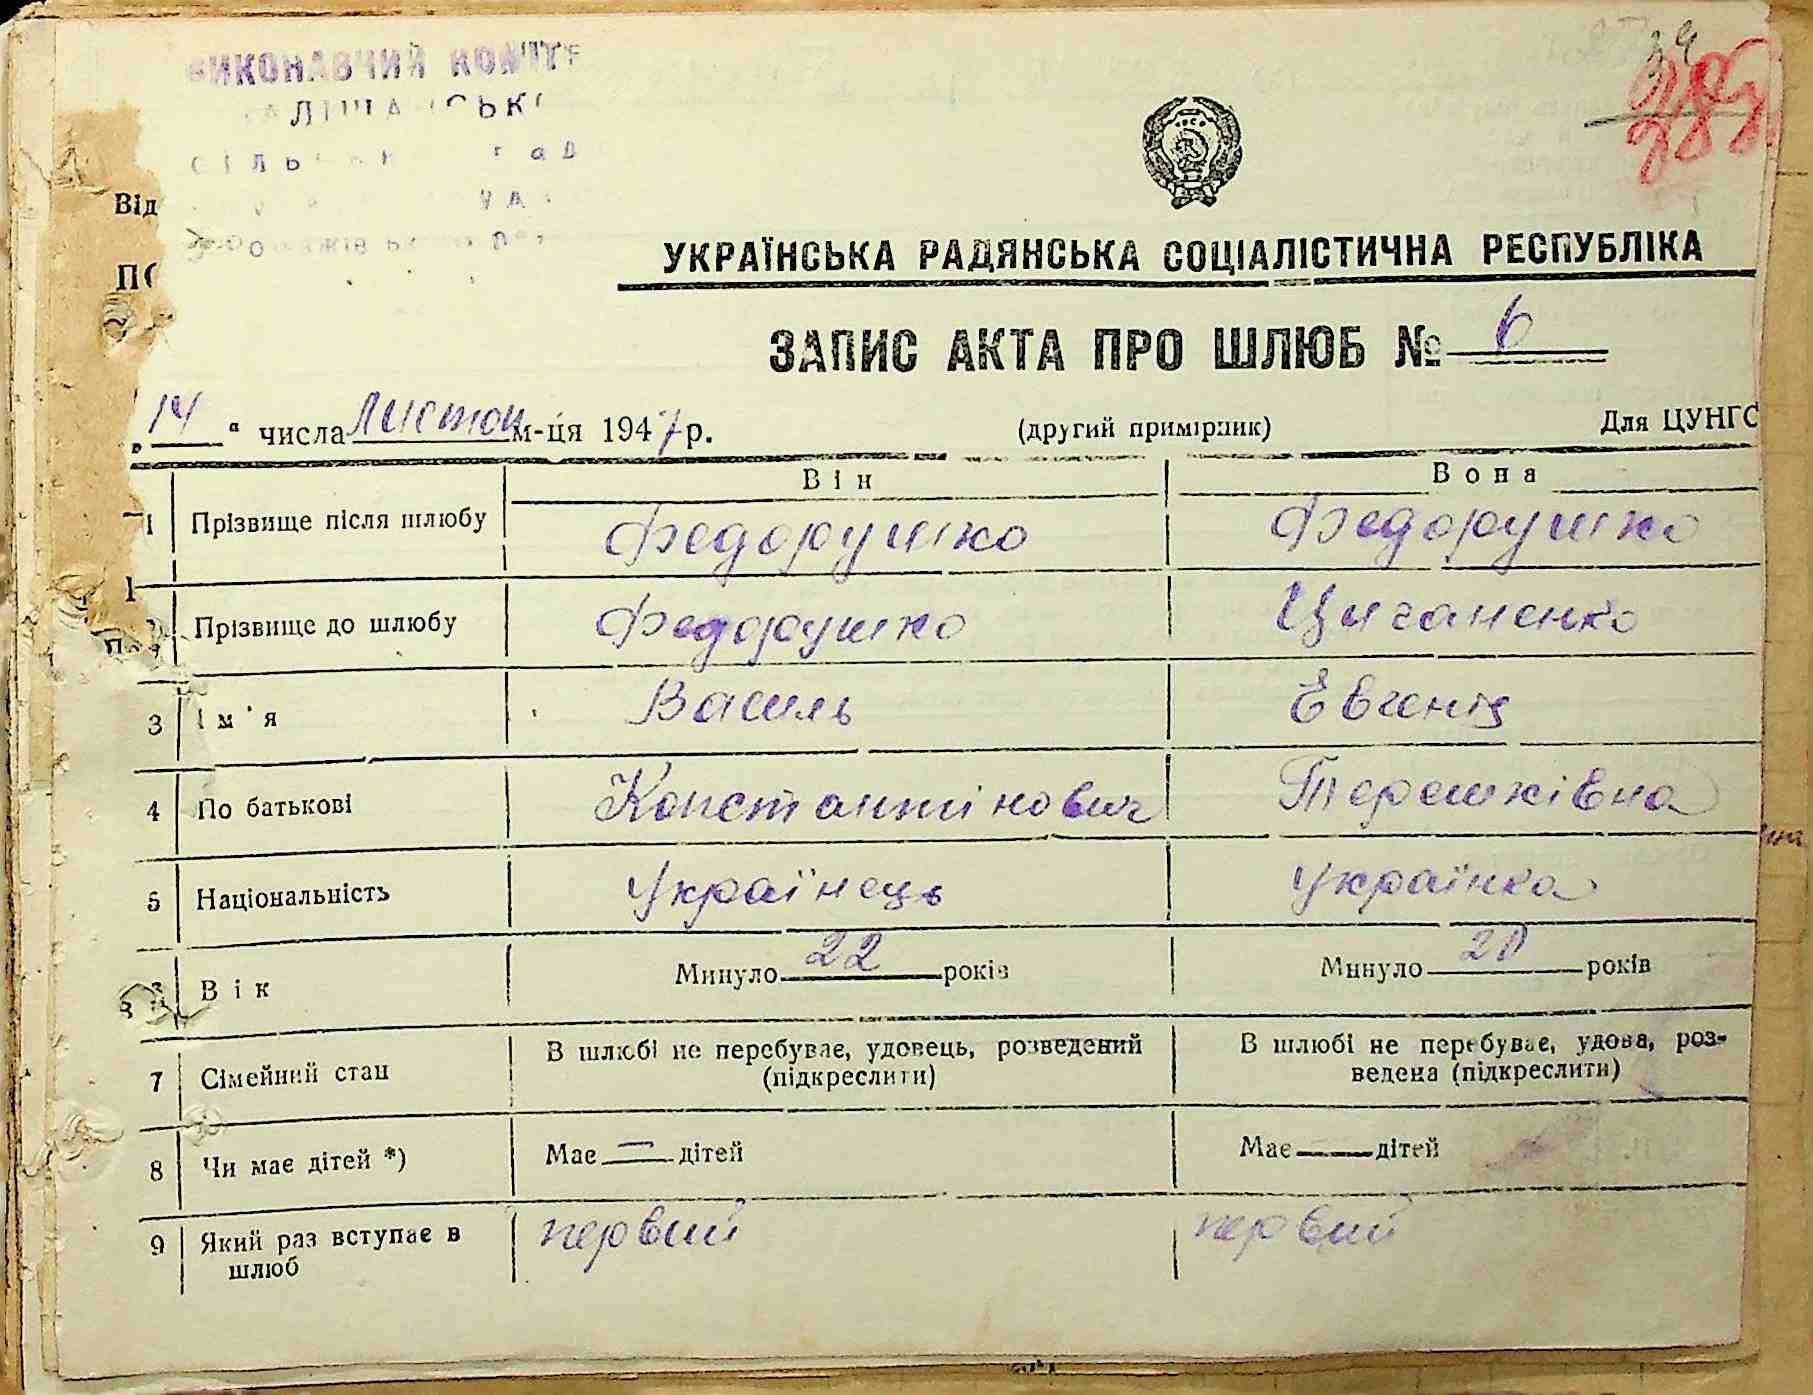 ВИКОНАВЧИЙ КОМІТЕ
Від
УКРАЇНСЬКА РАДЯНСЬКА СОЦІАЛІСТИЧНА РЕСПУБЛІКА
ЗАПИС АКТА ПРО ШЛЮБ № 6
„14“ числа Листоп м-ця 1947 р. (другий примірник) Для ЦУНГС
Він Вона
1 Прізвище після шлюбу Федорушко Федорушко
Прізвище до шлюбу Федорушко Циганенко
3 Ім'я Василь Евгенія
4 По батькові Константінович Терешківна
5 Національність Українець Українка
Вік Минуло 22 років Минуло 20 років
7 Сімейний стан В шлюбі не перебуває, удовець, розведений (підкреслити) В шлюбі не перебуває, удова, роз-
ведена (підкреслити)
8 Чи має дітей *) Має — дітей Має дітей
9 Який раз вступає в шлюб первий первий